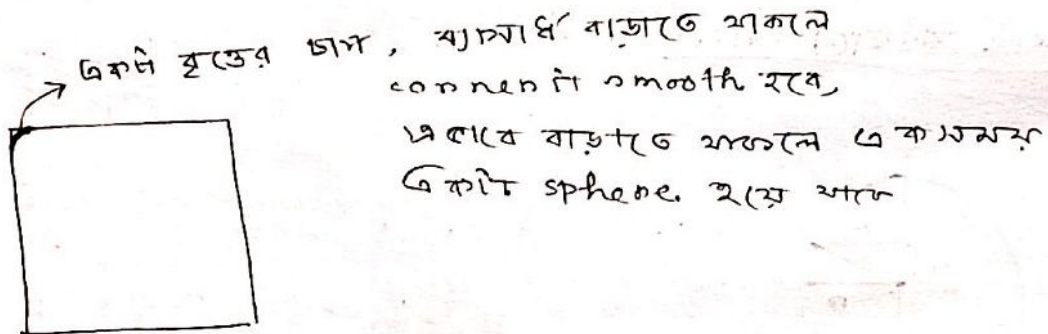 একটা বৃত্তের চাপ, ব্যাসার্ধ বাড়াতে থাকলে
corner টি smooth হবে,
এভাবে বাড়াতে থাকলে একসময়
একটি sphere. হয়ে যাবে